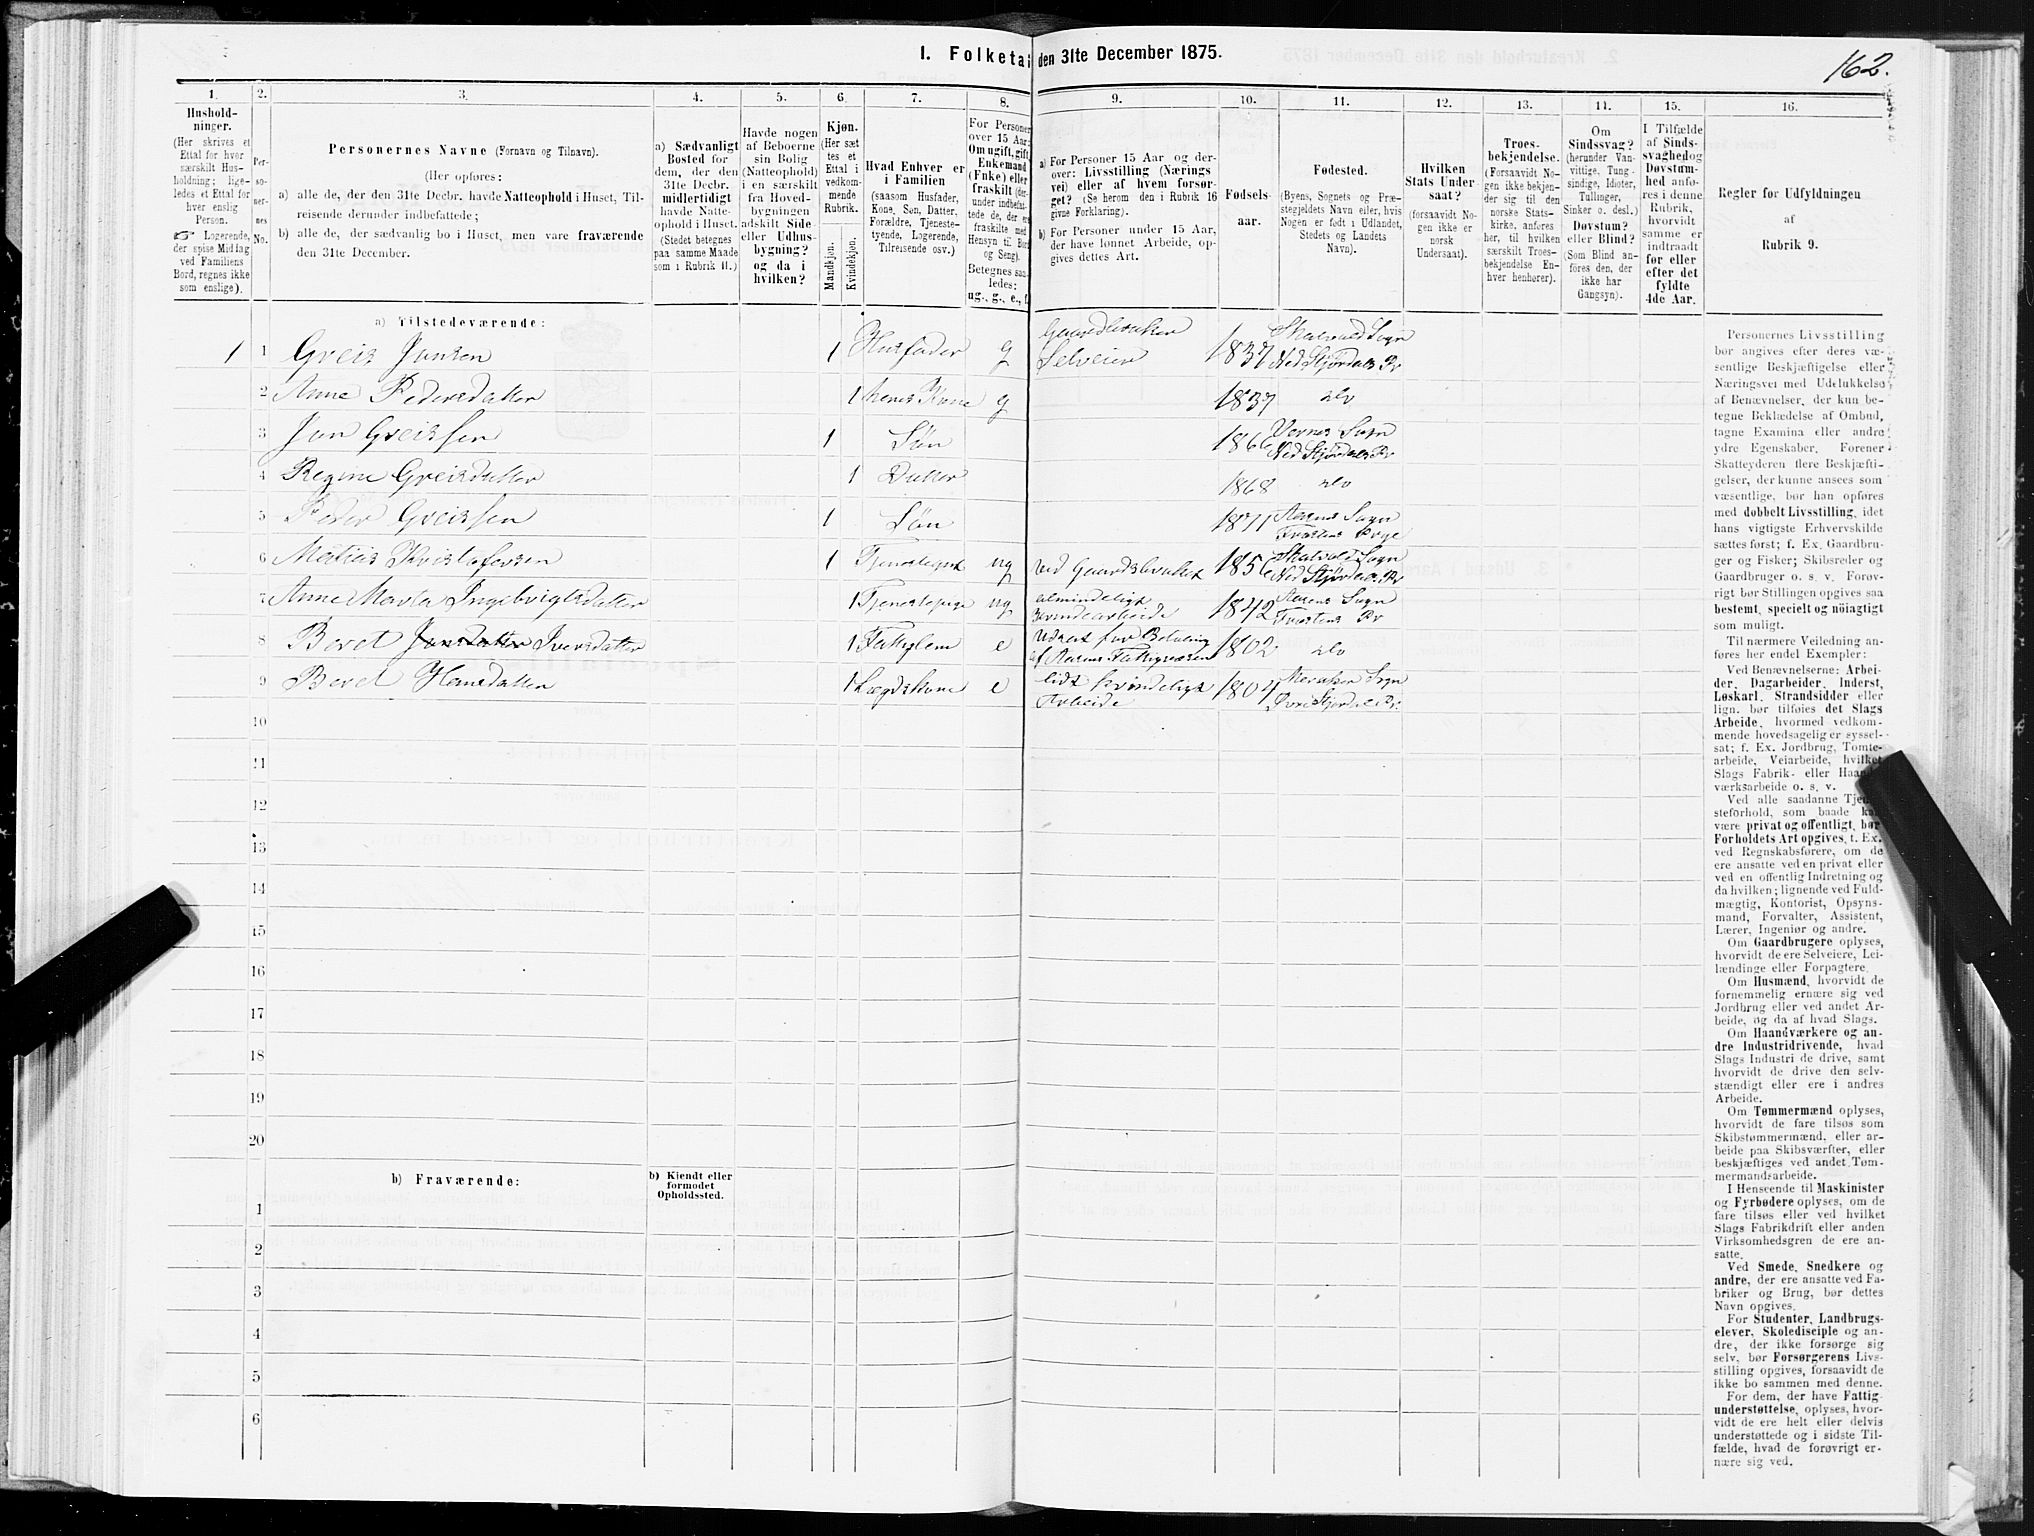 162.
1. Folketæl den 31te December 1875.
1. 2. 3. 4. 5. 6. 7. 8. 9. 10. 11. 12. 13. 14. 15. 16.
Hushold-
ninger.
(Her skrives et
Ettal for hver
særskilt Hus-
holdning; lige-
ledes et Ettal for
hver enslig
Person.
☞ Logerende,
der spise Middag
ved Familiens
Bord, regnes ikke
som enslige).
Per-
so-
ner-
nes
No.
Personernes Navne (Fornavn og Tilnavn).
(Her opføres:
a) alle de, der den 31te Decbr. havde Natteophold i Huset, Til-
reisende derunder indbefattede;
b) alle de, der sædvanlig bo i Huset, men vare fraværende
den 31te December.
a) Sædvanligt
Bosted for
dem, der den
31te Decbr.
midlertidigt
havde Natte-
ophold i Huset.
(Stedet betegnes
paa samme Maade
som i Rubrik 11.)
Havde nogen
af Beboerne
sin Bolig
(Natteophold)
i en særskilt
fra Hoved-
bygningen
adskilt Side-
eller Udhus-
bygning?
og da i
hvilken?
Kjøn.
(Her sæt
tes et
Ettal i
vedkom-
mende
Rubrik.
Mandkjøn.
Kvindekjøn.
Hvad Enhver er
i Familien
(saasom Husfader,
Kone, Søn, Datter,
Forældre, Tjeneste-
tyende, Logerende,
Tilreisende osv.)
For Personer
over 15 Aar:
Om ugift, gift,
Enkemand
(Enke) eller
fraskilt (der-
under indbefat-
tede de, der ere
fraskilte med
Hensyn til Bord
og Seng).
Betegnes saa-
ledes:
ug., g., e., f.
a) For Personer 15 Aar og der-
over: Livsstilling (Nærings
vei) eller af hvem forsør-
get? (Se herom den i Rubrik 16
givne Forklaring).
b) For Personer under 15 Aar,
der have lønnet Arbeide, op-
gives dettes Art.
Fødsels-
aar.
Fødested.
(Byens, Sognets og Præ-
stegjeldets Navn eller, hvis
Nogen er født i Udlandet,
Stedets og Landets
Navn).
Hvilken
Stats Under-
saat?
(forsaavidt No-
gen ikke er
norsk
Undersaat).
Troes-
bekjendelse.
(Forsaavidt No-
gen ikke bekjen-
der sig til den
norske Stats-
kirke, anføres
her, til hvilken
særskilt Troes-
bekjendelse En-
hver henhører).
Om
Sindssvag?
(herunder Van-
vittige, Tung-
sindige, Idioter,
Tullinger,
Sinker o. desl.)
Døvstum?
eller Blind?
(Som Blind an-
føres den, der
ikke har
Gangsyn).
I Tilfælde
af Sinds-
svaghed og
Døvstum-
hed anfø-
res i denne
Rubrik,
hvorvidt
samme er
indtraadt
før eller
efter det
fyldte
4de Aar.
Regler for Udfyldningen
af
Rubrik 9.
a) Tilstedeværende:
1 1 Greis Jonsen 1 Husfader g Gaardbruker Selveier 1837 Skatvold Sogn Ned Stjørdals Pr
2 Anne Pedersdatter 1 hans Kone g 1837 do
3 Jon Greissen 1 Søn 1866 Vernes Sogn Ned Stjørdals Pr
4 Regine Greisdatter 1 Datter 1868 do
5 Peder Greissen 1 Søn 1871 Aasens Sogn Frostens Prgj
6 Matias Kristofersen 1 Tjenestegut ug ved Gaardsbruket 1856 Skatvold Sogn Ned Stjørdals Pr
7 Anne Marta Ingebrigtsdatter 1 Tjenestepige ug almindeligt Kvindearbeide 1842 Aasens Sogn Frostens Pr
8 Beret Jonsdatter Iversdatter 1 Fattiglem e Udsat for Betaling af Aasens Fattigvæsen 1802 do
9 Beret Hansdatter 1 Lægdskone e lidt kvindeligt Arbeide 1804 Meraker Sogn Øvre Stjørdal Pr.
10
11
12
13
14
15
16
17
18
19
20
b) Fraværende:
b) Kjendt eller
formodet
Opholdssted.
1
2
3
4
5
6
Personernes Livsstilling
bør angives efter deres væ-
sentlige Beskjæftigelse eller
Næringsvei med Udelukkelse
af Benævnelser, der kun be-
tegne Beklædelse af Ombud,
tagne Examina eller andre
ydre Egenskaber. Forener
Skatteyderen flere Beskjæfti-
gelser, der kunne ansees som
væsentlige, bør han opføres
med dobbelt Livsstilling, idet
hans vigtigste Erhvervskilde
sættes først; f. Ex. Gaardbru-
ger og Fisker; Skibsreder og
Gaardbruger o. s. v. Forøv-
rigt bør Stillingen opgives saa
bestemt, specielt og nöiagtigt
som muligt.
Til nærmere Veiledning an-
føres her endel Exempler:
Ved Benævnelserne: Arbei-
der, Dagarbeider, Inderst,
Løskarl, Strandsidder eller
lign. bør tilføies det Slags
Arbeide, hvormed vedkom-
mende hovedsagelig er syssel-
sat; f. Ex. Jordbrug, Tomte-
arbeide, Veiarbeide, hvilket
Slags Fabrik- eller Haand-
værksarbeide o. s. v.
Ved alle saadanne Tjene-
steforhold, som baade kan
være privat og offentligt, bør
Forholdets Art opgives, t. Ex.
ved Regnskabsførere, om de
ere ansatte ved en privat eller
ved en offentlig Indretning og
da hvilken; lignende ved Fuld-
mægtig, Kontorist, Opsyns-
mand, Forvalter, Assistent,
Lærer, Ingeniør og andre.
Om Gaardbrugere oplyses,
hvorvidt de ere Selveiere, Lei-
lændinge eller Forpagtere.
Om Husmænd, hvorvidt de
fornemmelig ernære sig ved
Jordbrug eller ved andet Ar-
beide, og da af hvad Slags.
Om Haandværkere og an-
dre Industridrivende, hvad
Slags Industri de drive, samt
hvorvidt de drive den selv-
stændigt eller ere i andres
Arbeide.
Om Tømmermænd oplyses,
hvorvidt de fare tilsøs som
Skibstømmermænd, eller ar-
beide paa Skibsværfter, eller
beskjæftiges ved andet Tøm-
mermandsarbeide.
I Henseende til Maskinister
og Fyrbødere oplyses, om de
fare tilsøs eller ved hvilket
Slags Fabrikdrift eller anden
Virksomhedsgren de ere an-
satte.
Ved Smede, Snedkere og
andre, der ere ansatte ved Fa-
briker og Brug, bør dettes
Navn opgives.
For Studenter, Landbrugs-
elever, Skoledisciple og an-
dre, der ikke forsørge sig
selv, bør Forsørgerens Livs-
stilling opgives, forsaavidt de
ikke bo sammen med denne.
For dem, der have Fattig-
understøttelse, oplyses, hvor-
vidt de ere helt eller delvis
understøttede og i sidste Til-
fælde, hvad de forøvrigt er-
nære sig ved.